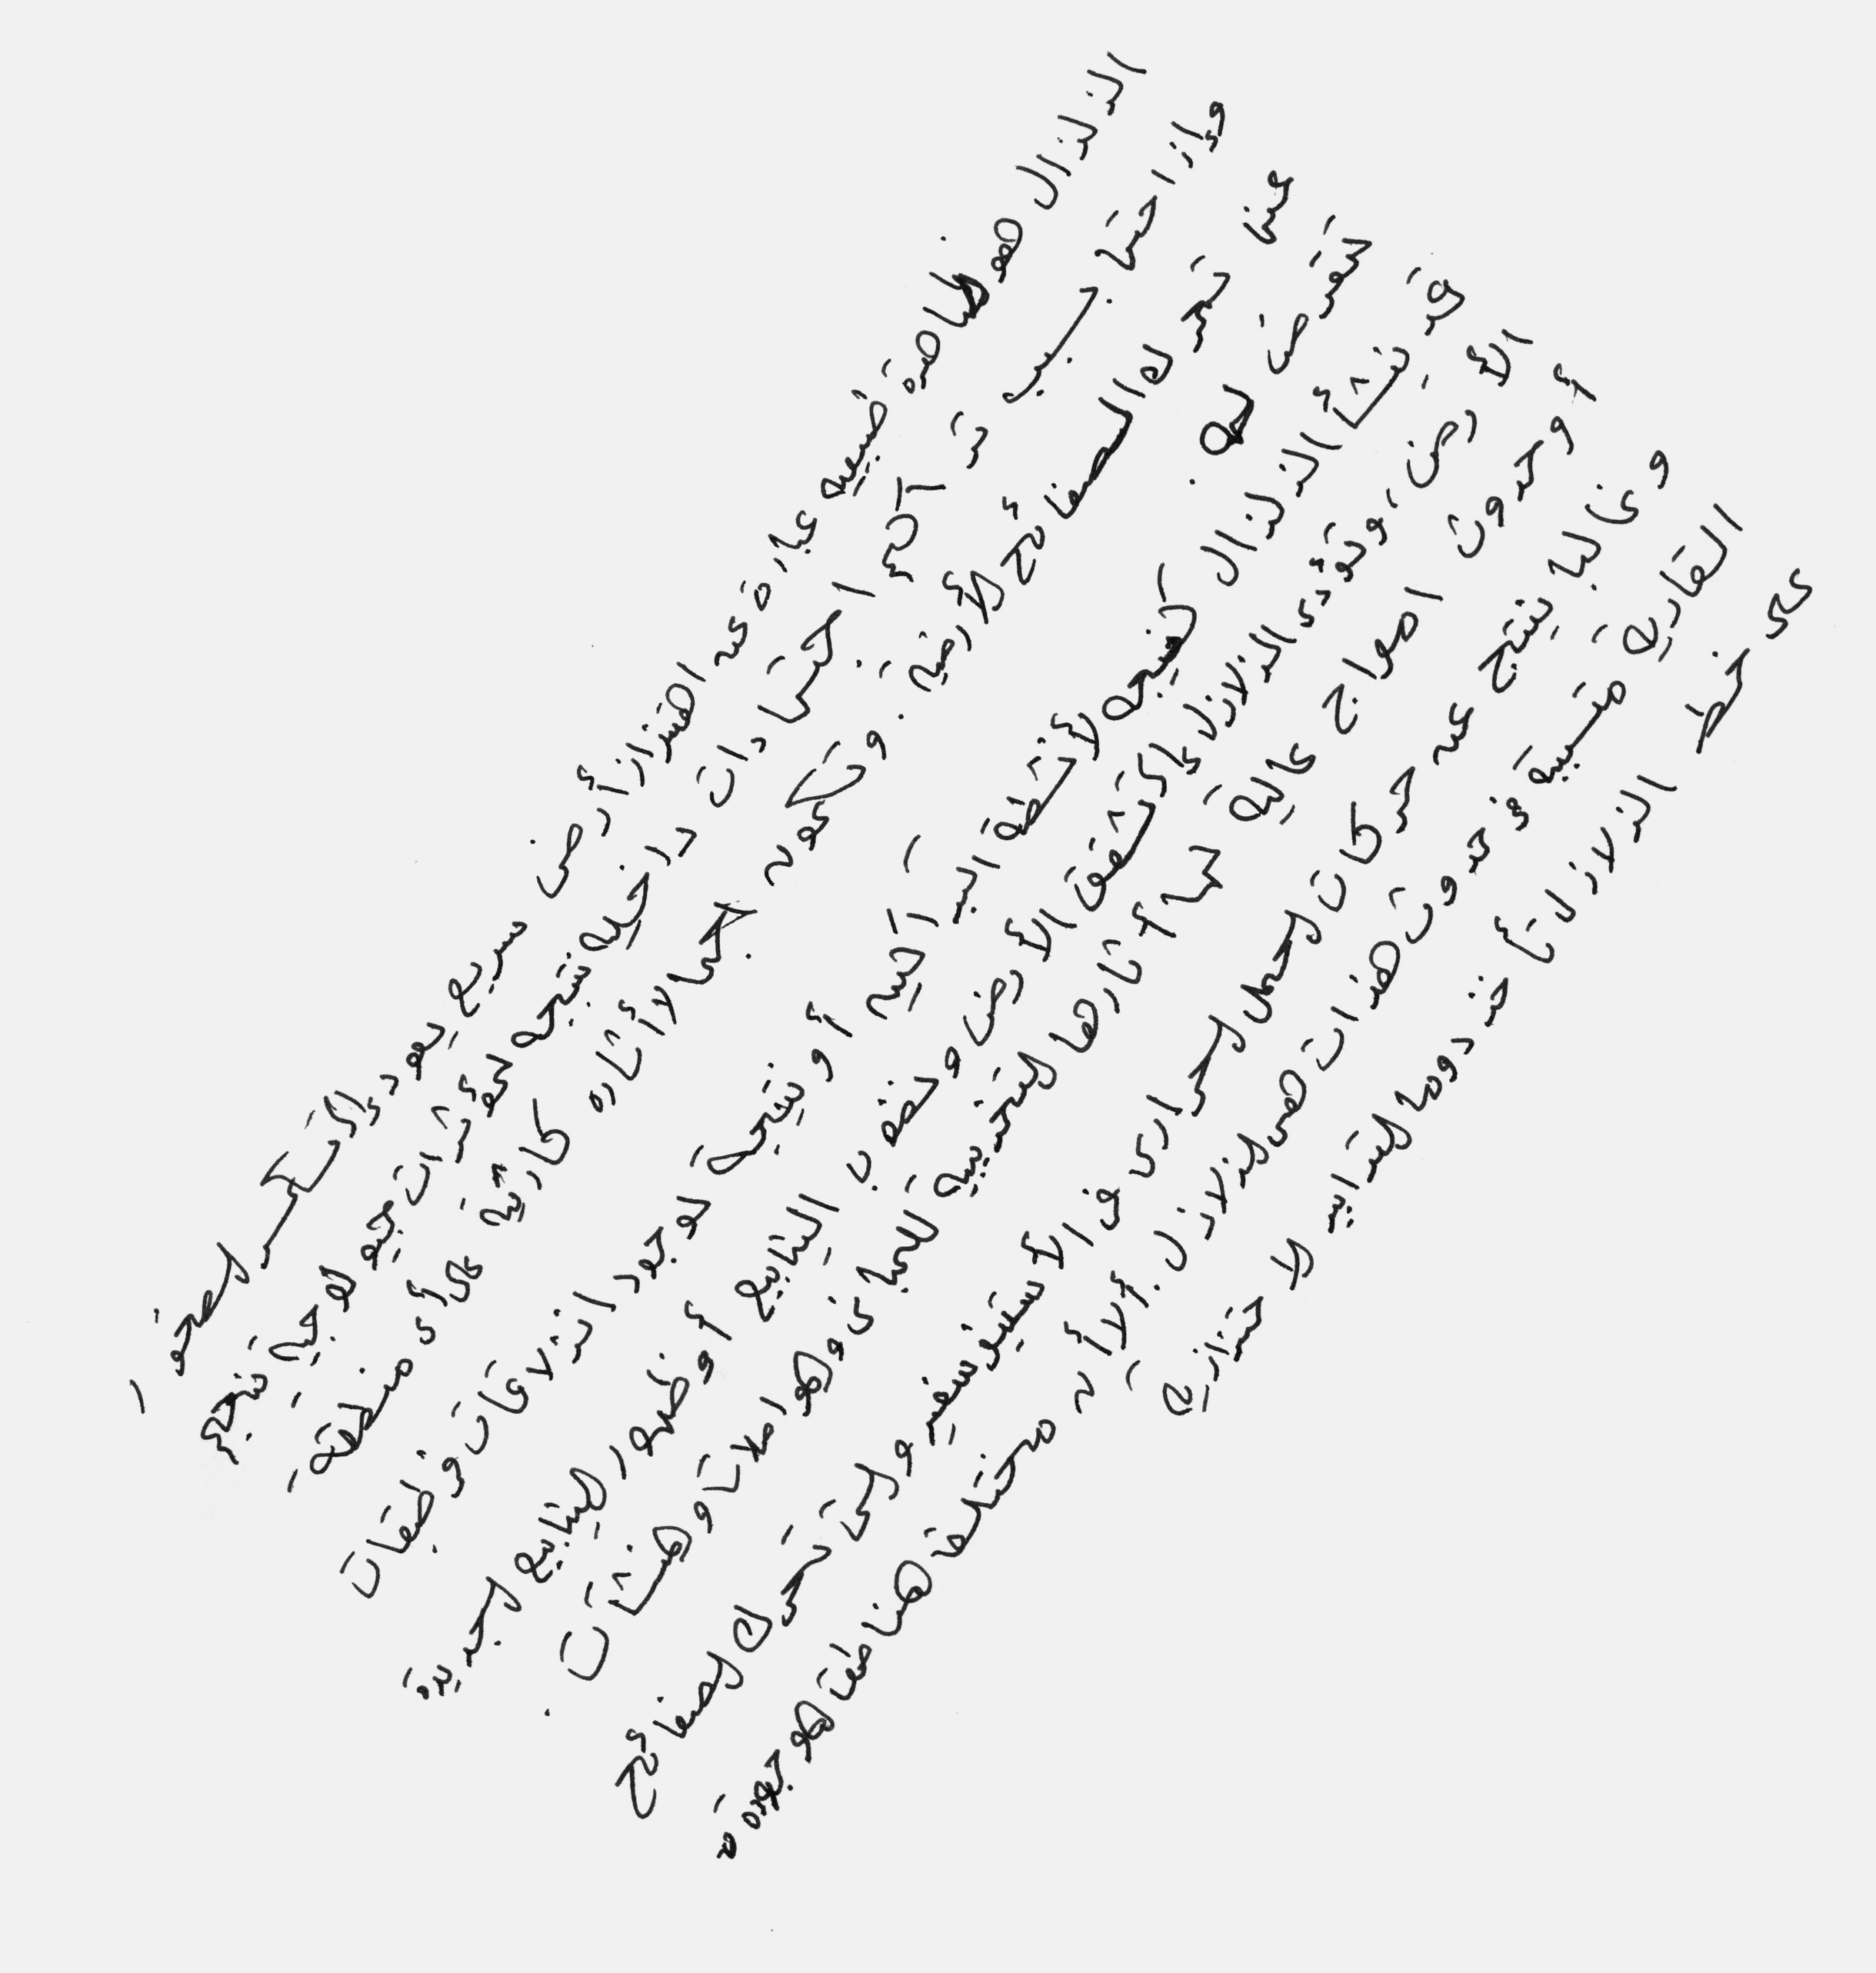 الزلزال هو ظاهرة طبيعية عبارة عن اهتزاز أرضي سريع يعود إلى تكسر الصخور
وإزاحتها بسبب تراكم اجتهادات داخلية نتيجة لمؤثرات جيولوجية ينجم
عنها تحرك الصفائح الأرضية. وتكون مجالا أثاره كارثية على أي منطقة
تتعرض له.
قد ينشأ الزلزال كنتيجة لأنشطة البراكين أو نتيجة لوجود انزلاقات في طبقات
الأرض، وتؤدي الزلازل إلى تشقق الأرض و نضوب الينابيع أو ظهور الينابيع الجديدة
أو حدوث امواج عالية لها آثارها التخريبية للمباني والمواصلات والمنشآت.
وغالبا ينتج عن حركات الحمل الحراري في الأستينوسفير والتي تحرك الصفائح
القارية متسببة في حدوث هزات هي الزلازل. الا أنه مختلف المناطق الموجودة
على خط الزلازل تأخذ دوما التدابير الاحترازية